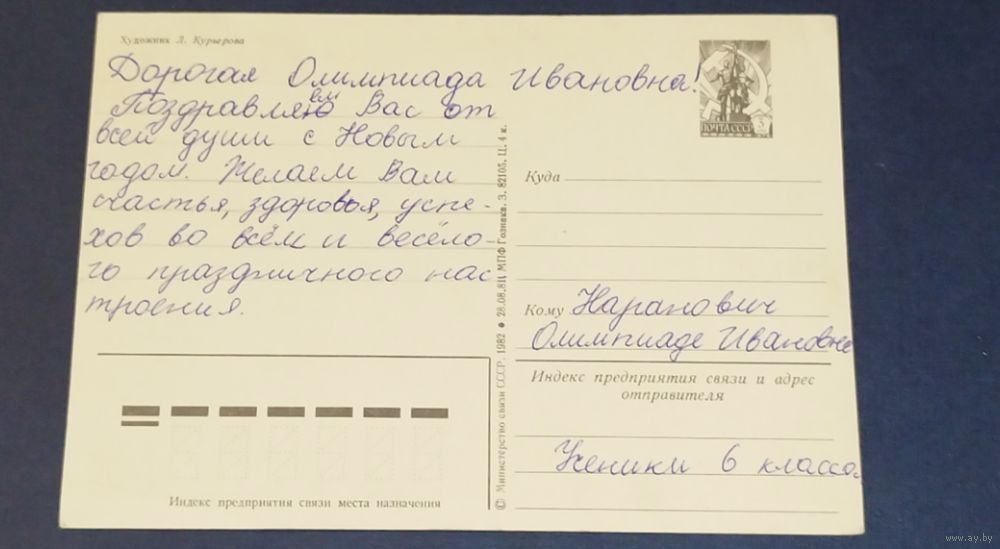 Художник Л. Курьерова
Дорогая Олимпиада Ивановна!
ем
Поздравляю Вас от
всей души с Новым
годом. Желаем Вам
счастья, здоровья, успе-
хов во всём и весёло-
го праздничного нас
троения.
Индекс предприятия связи места назначения
© Министерство связи СССР. 1982 ● 28.08.81. МПФ Гознака. З. 82105. Ц. 4 к.
ПОЧТА СССР 3
Куда
Кому Наранович
Олимпиаде Ивановне
Индекс предприятия связи и адрес
отправителя
Ученики 6 класса.
www.ay.by